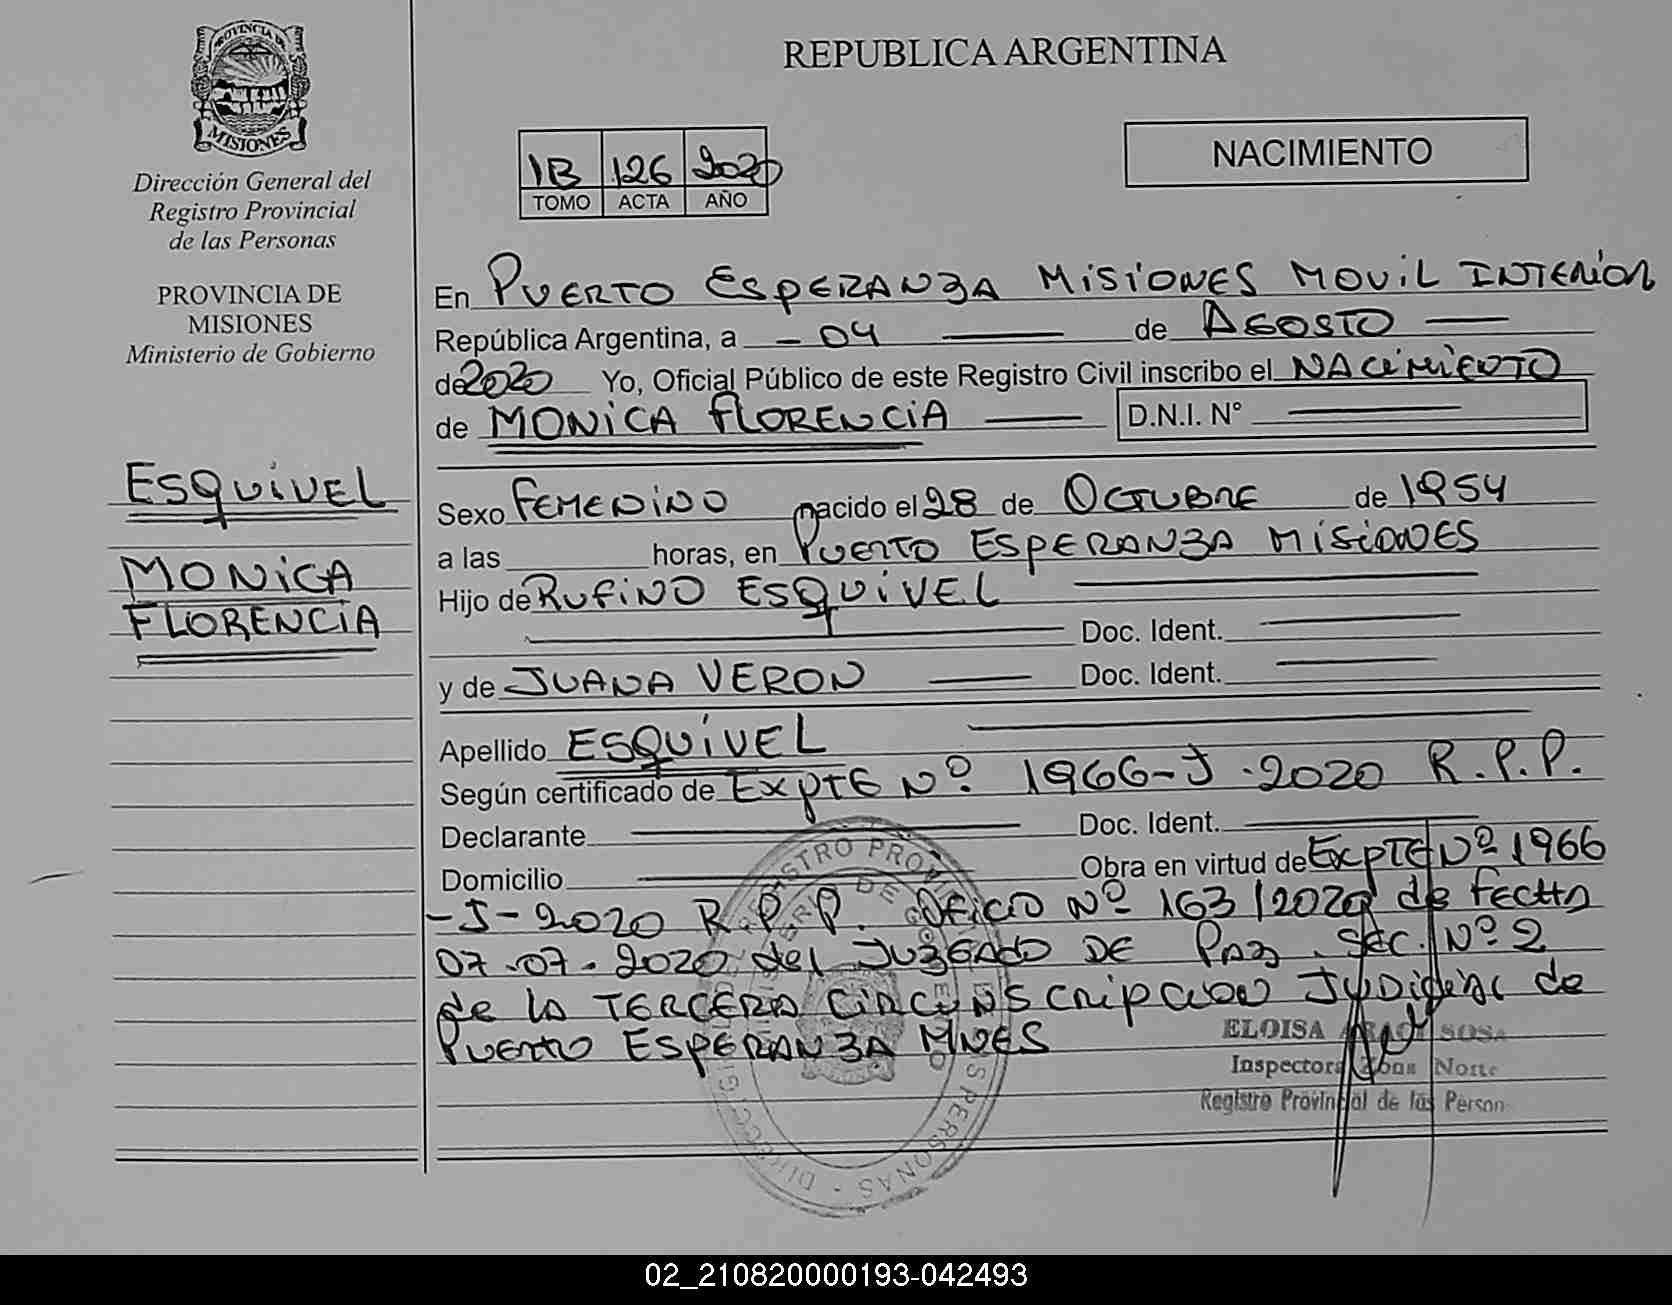 PROVINCIA DE
MISIONES
Dirección General del
Registro Provincial
de las Personas
PROVINCIA DE
MISIONES
Ministerio de Gobierno
ESQUIVEL
MONICA
FLORENCIA
REPUBLICA ARGENTINA
1B 126 2020
TOMO ACTA AÑO
NACIMIENTO
En PUERTO ESPERANZA MISIONES MOVIL INTERIOR
República Argentina, a - 04 de AGOSTO
de 2020 Yo, Oficial Público de este Registro Civil inscribo el NACIMIENTO
de MONICA FLORENCIA D.N.I. N°
Sexo FEMENINO nacido el 28 de OCTUBRE de 1954
a las horas, en PUERTO ESPERANZA MISIONES
Hijo de RUFINO ESQUIVEL
Doc. Ident.
y de JUANA VERON Doc. Ident.
Apellido ESQUIVEL
Según certificado de EXPTE Nº 1966-J-2020 R.P.P.
Declarante Doc. Ident.
Domicilio Obra en virtud de EXPTE Nº 1966
-J-2020 R.P.P. OFICIO Nº 163/2020 de FECHA
07-07-2020 del JUZGADO DE PAZ. SEC. Nº 2
de LA TERCERA CIRCUNSCRIPCION JUDICIAL de
PUERTO ESPERANZA MNES
ELOISA SOSA
Inspectora Zona Norte
Registro Provincial de las Person
02_210820000193-042493